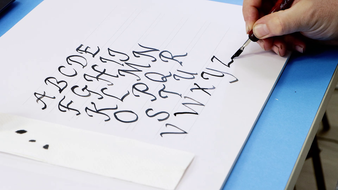 ABCDE
FGHIJ
KLMN
OPQR
STU
VWXYZ